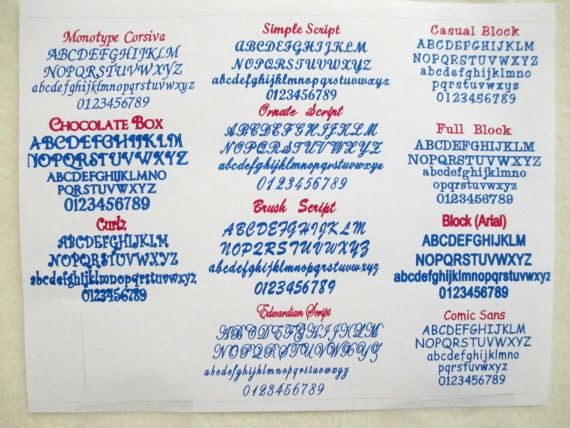 Monotype Corsiva
ABCDEFGHIJKLM
NOPQRSTUVWXYZ
abcdefghijklmnopqrstuvwxyz
0123456789
CHOCOLATE BOX
ABCDEFGHIJKLM
NOPQRSTUVWXYZ
ABCDEFGHIJKLM
NOPQRSTUVWXYZ
0123456789
Curlz
ABCDEFGHIJKLM
NOPQRSTUVWXYZ
abcdefghijklmnopqrstuvwxyz
0123456789
Simple Script
ABCDEFGHIJKLM
NOPQRSTUVWXYZ
abcdefghijklmnopqrstuvwxyz
0123456789
Ornate Script
ABCDEFGHIJKLM
NOPQRSTUVWXYZ
abcdefghijklmnopqrstuvwxyz
0123456789
Brush Script
ABCDEFGHIJKLM
NOPQRSTUVWXYZ
abcdefghijklmnopqrstuvwxyz
0123456789
Edwardian Script
ABCDEFGHIJKLM
NOPQRSTUVWXYZ
abcdefghijklmnopqrstuvwxyz
0123456789
Casual Block
ABCDEFGHIJKLM
NOPQRSTUVWXYZ
abcdefghijklmno
pqrstuvwxyz
0123456789
Full Block
ABCDEFGHIJKLM
NOPQRSTUVWXYZ
abcdefghijklmn
opqrstuvwxyz
0123456789
Block (Arial)
ABCDEFGHIJKLM
NOPQRSTUVWXYZ
abcdefghijklmnopqrstuvwxyz
0123456789
Comic Sans
ABCDEFGHIJKLM
NOPQRSTUVWXYZ
abcdefghijklmno
pqrstuvwxyz
0123456789